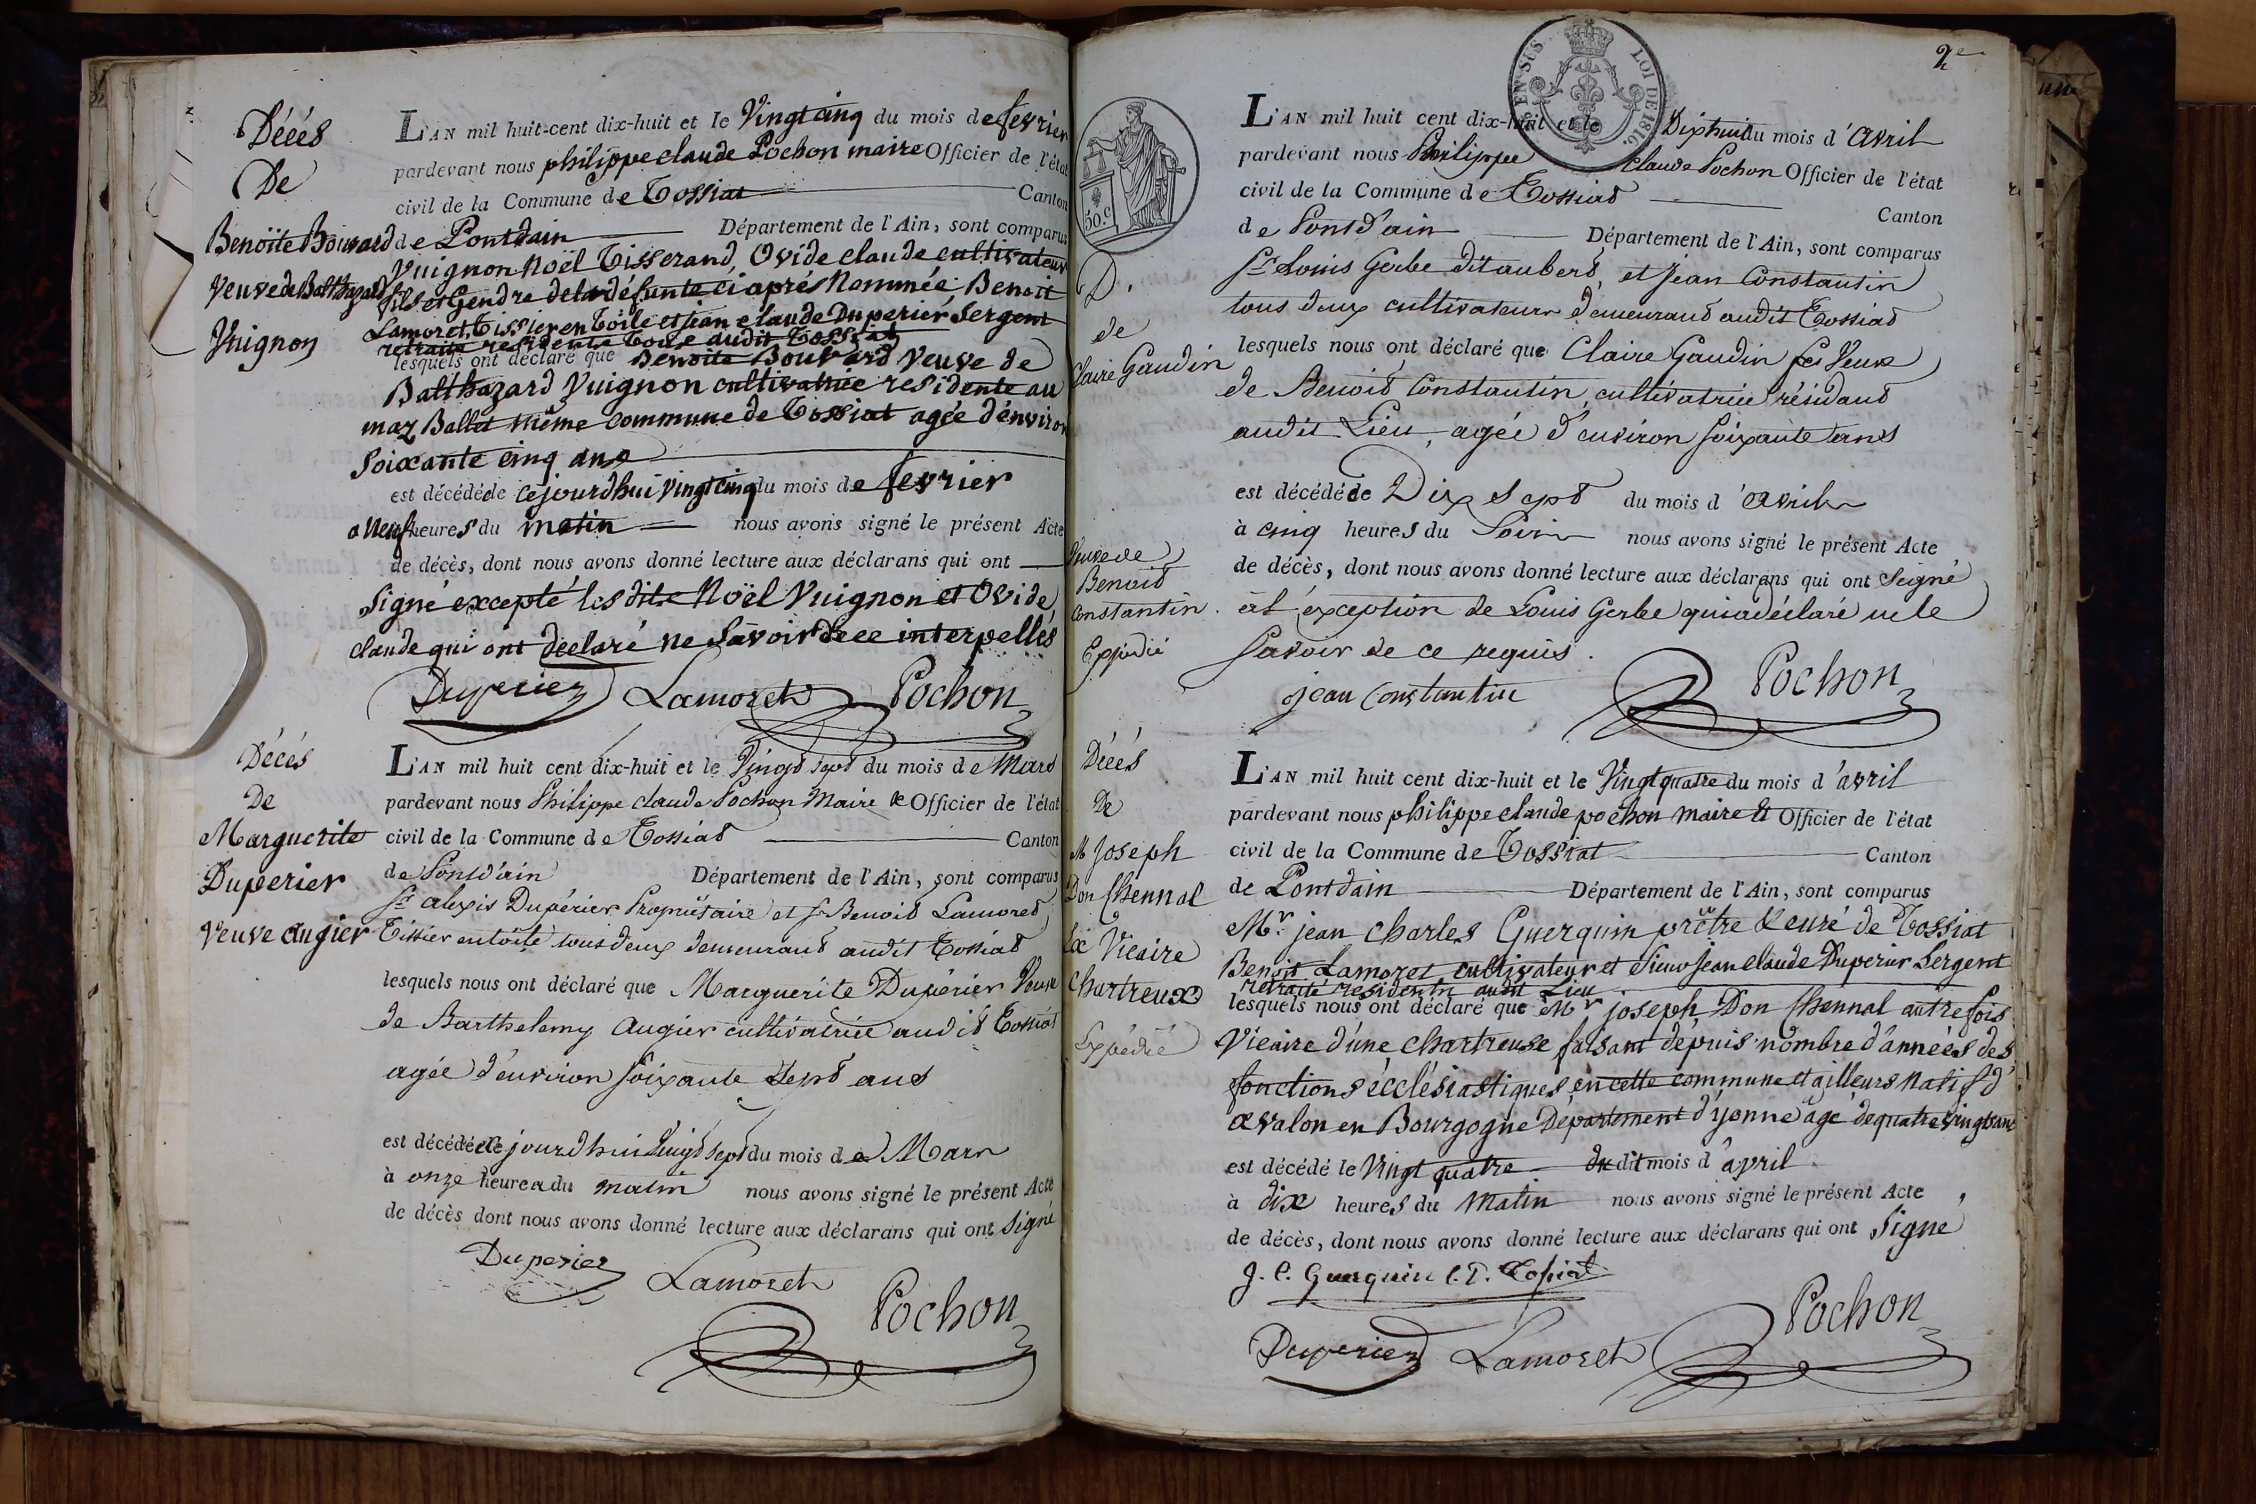 Décés
De
Benoite Bouvard
Veuve de Balthazard
Vuignon
L'AN mil huit-cent dix-huit et le Vingt cinq du mois de fevrier
pardevant nous philippe claude Pochon maire Officier de l'état
civil de la Commune de Tossiat Canton
de Pontdain Département de l'Ain, sont comparus
Vuignon Noël Tisserand, Ovide claude cultivateur
fils et Gendre de la défunte ci aprés Nommée, Benoit
Lamoret Tissier en Toile et jean claude Duperier Sergent
retraite residents tous audit Tossiat
lesquels ont déclaré que Benoite Bouvard Veuve de
Balthazard Vuignon cultivatrice residente au
maz Ballet même commune de Tossiat agée d'environ
Soixante cinq ans
est décédée cejourdhui vingt cinq du mois de fevrier
a Neuf heures du matin nous avons signé le présent Acte
de décès, dont nous avons donné lecture aux déclarans qui ont
Signé excepté les dits Noël Vuignon et Ovide
claude qui ont declaré ne Savoir de ce interpellés
Duperier Lamoret Pochon
Décés
De
Marguerite
Duperier
Veuve augier
L'AN mil huit cent dix-huit et le Vingt Sept du mois de Mars
pardevant nous Philippe claude Pochon Maire & Officier de l'état
civil de la Commune de Tossiat Canton
de Pontd'ain Département de l'Ain, sont comparus
Sr alexis Dupérier Propriétaire et Sr Benoit Lamoret
Tissier en toile tous deux demeurant audit Tossiat
lesquels nous ont déclaré que Marguerite Dupérier Veuve
de Barthelemy Augier cultivatrice audit Tossiat
agée d'environ soixante Sept ans
est décédée cejourdhui Vingt Sept du mois de Mars
à onze heures du matin nous avons signé le présent Acte
de décès dont nous avons donné lecture aux déclarans qui ont Signé
Duperier Lamoret
Pochon
2e
EN SUS LOI DE 1816.
50.c
D.
de
Claire Gaudin
Veuve de
Benoit
Constantin.
Expedié
L'AN mil huit cent dix-huit et le Dixhuit du mois d'avril
pardevant nous Philippe claude Pochon Officier de l'état
civil de la Commune de Tossiat Canton
de Pontd'ain Département de l'Ain, sont comparus
Sr Louis Gerbe dit aubert, et Jean Constantin
tous deux cultivateurs demeurant audit Tossiat
lesquels nous ont déclaré que Claire Gaudin Veuve
de Benoit Constantin, cultivatrice résidant
audit Lieu, agée d'environ soixante ans
est décédée Dix Sept du mois d'avril
à cinq heures du Soir nous avons signé le présent Acte
de décès, dont nous avons donné lecture aux déclarans qui ont Seigné
à l'exception de Louis Gerbe qui a déclaré ne le
savoir de ce requis.
jean Constantin Pochon
Décés
De
M Joseph
Don Chennal
Ex Vicaire
Chartreux
Expédié
L'AN mil huit cent dix-huit et le Vingt quatre du mois d'avril
pardevant nous philippe claude pochon maire & Officier de l'état
civil de la Commune de Tossiat Canton
de Pontdain Département de l'Ain, sont comparus
Mr. jean charles Guerquin prêtre & curé de Tossiat
Benoit Lamoret cultivateur et Sieur Jean claude Duperier Sergent
retraité residents audit Lieu
lesquels nous ont déclaré que Mr joseph, Don Chennal autrefois
Vicaire d'une chartreuse faisant dépuis nombre d'années des
fonctions écclésiastiques en cette commune et ailleurs natif d'
avalon en Bourgogne Département d'yonne âgé de quatre vingt ans
est décédé le Vingt quatre du dit mois d'avril
à dix heures du matin nous avons signé le présent Acte
de décès, dont nous avons donné lecture aux déclarans qui ont Signé
J. C. Guerquin C. D. Tossiat
Duperier Lamoret Pochon